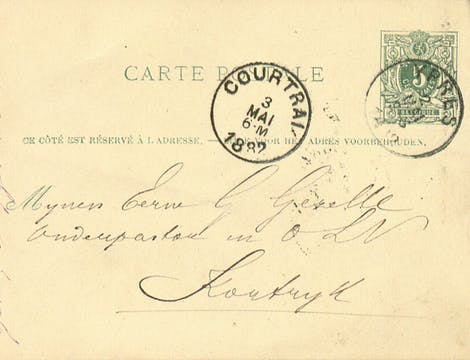 CARTE POSTALE
5
COURTRAI
3
MAI
6-M
1882
YPRES
CE CÔTÉ EST RÉSERVÉ À L'ADRESSE. — VOOR HET ADRES VOORBEHOUDEN.
Mynen Eerw G Gezelle
Onderpastoor in O L V
Kortryk